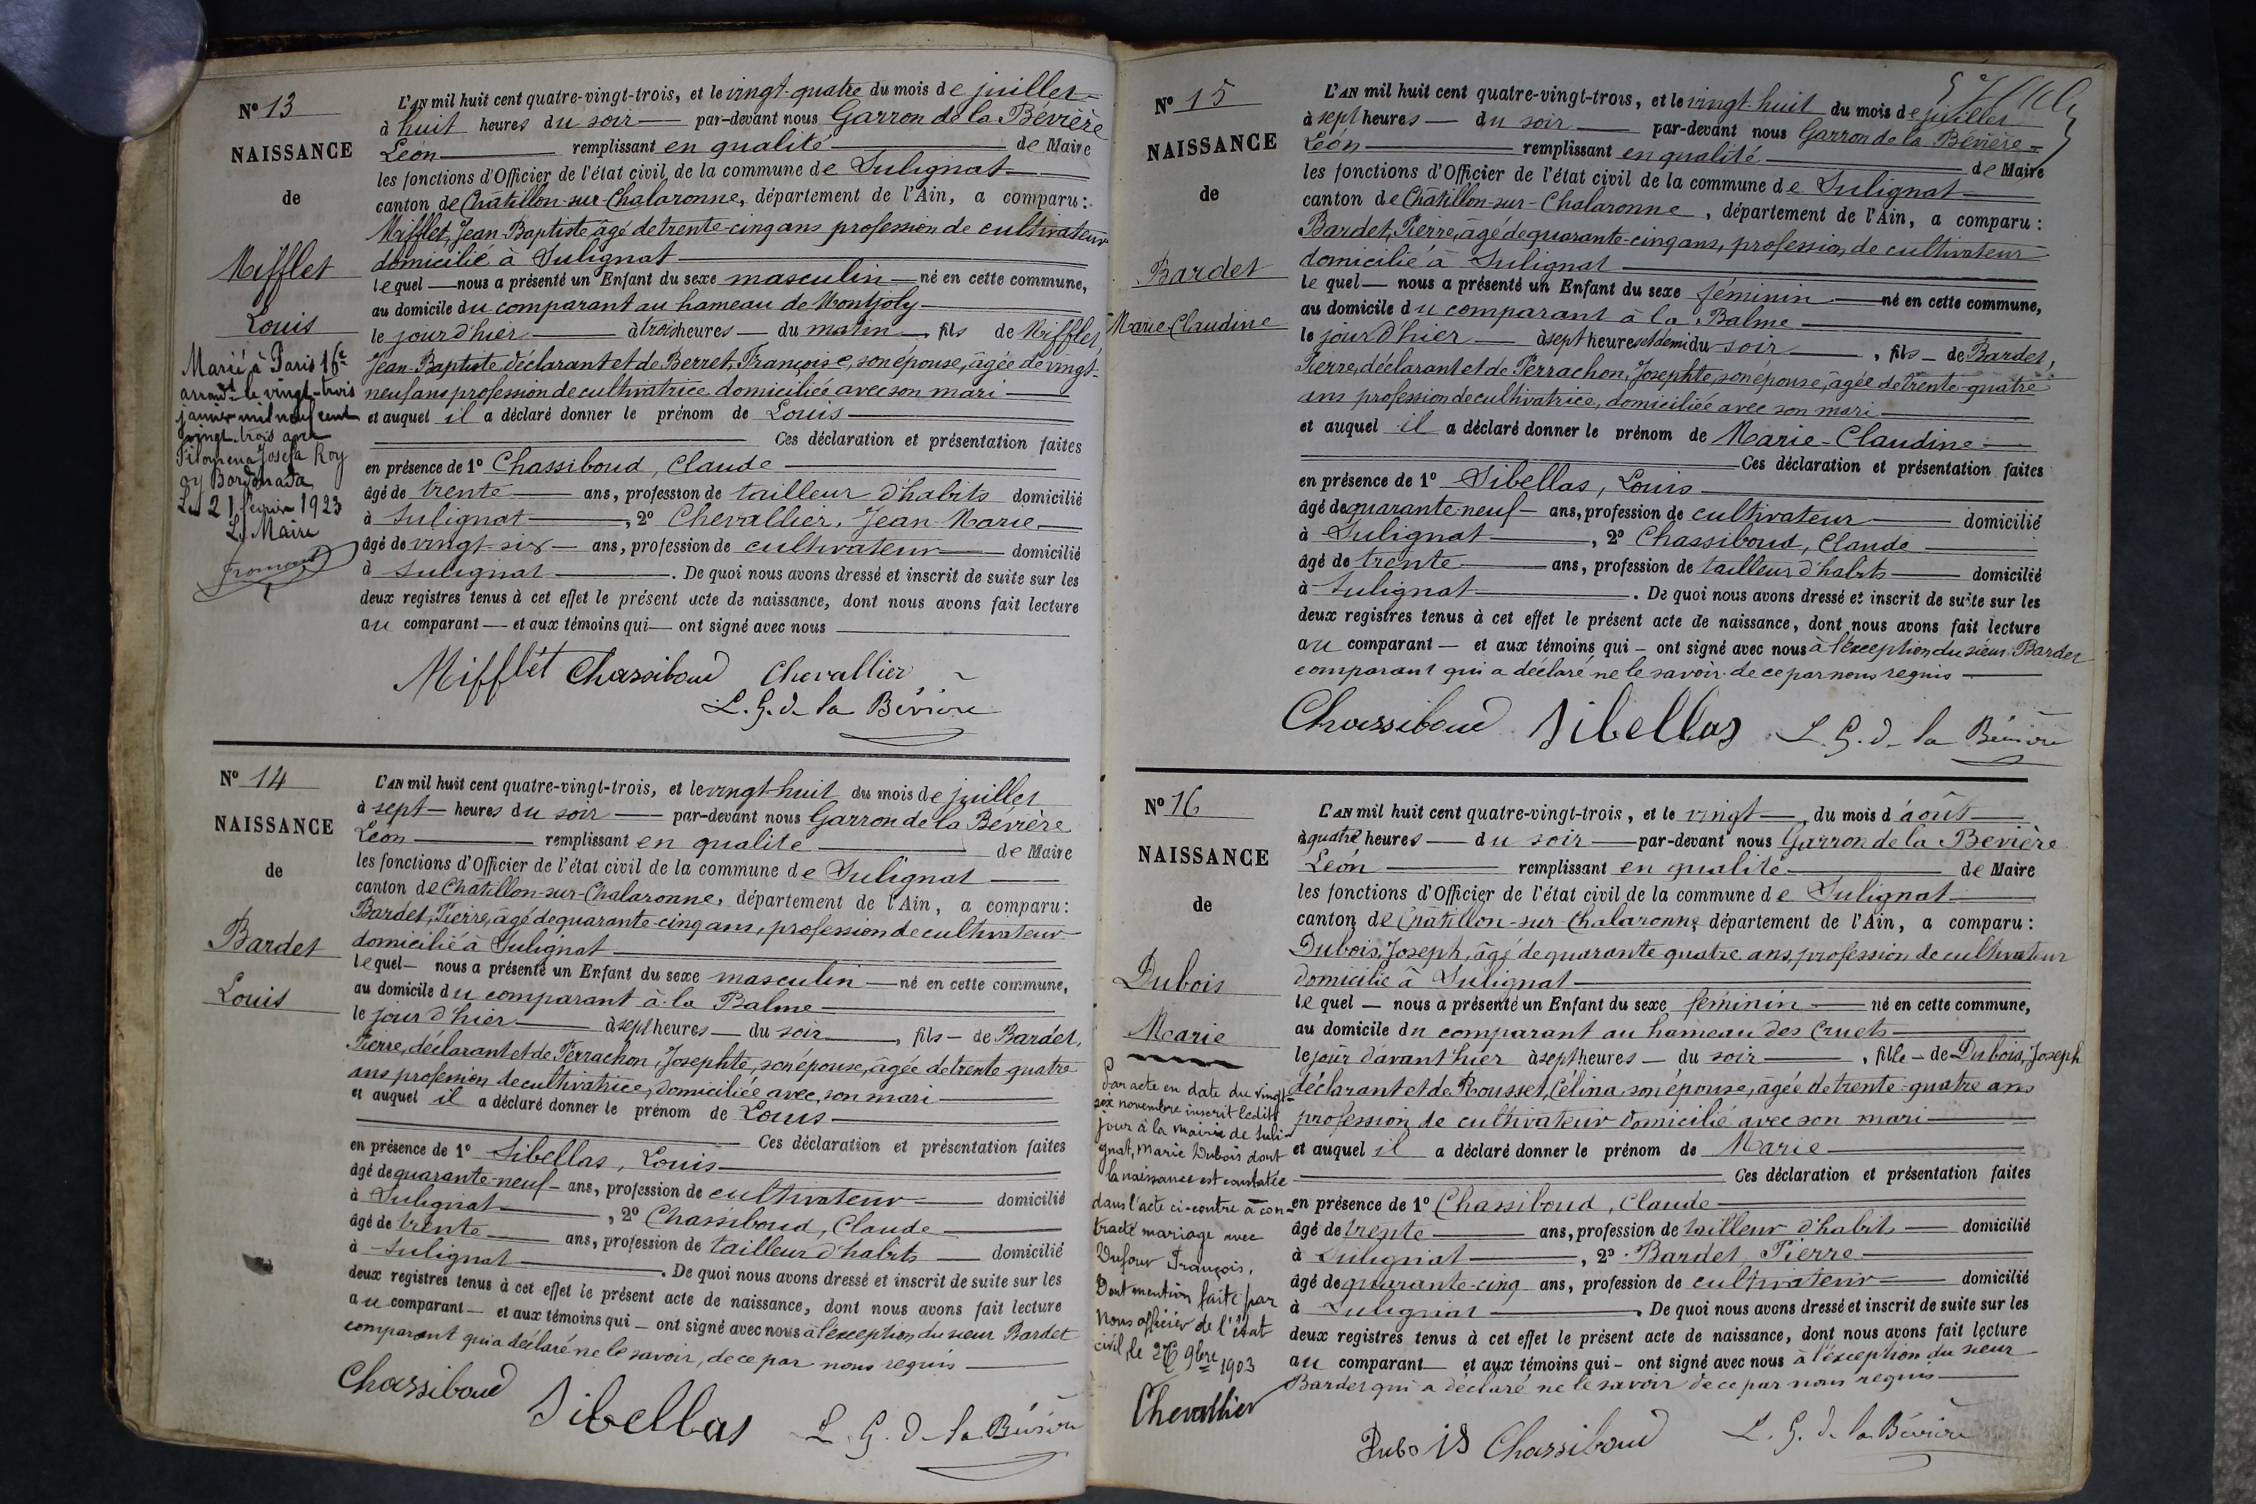 N° 13
NAISSANCE
de
Mifflet
Louis
Marié à Paris 16e
arrondt le vingt-trois
janvier mil neuf cent
vingt-trois avec
Filomena Josefa Roy
y Bordonada
Le 21 février 1923
Le Maire
L'AN mil huit cent quatre-vingt-trois, et le vingt-quatre du mois de juillet
à huit heures du soir par-devant nous Garron de la Bévière
Léon remplissant en qualité de Maire
les fonctions d'Officier de l'état civil de la commune de Sulignat
canton de Châtillon-sur-Chalaronne, département de l'Ain, a comparu :
Mifflet, Jean-Baptiste âgé de trente-cinq ans profession de cultivateur
domicilié à Sulignat
lequel nous a présenté un Enfant du sexe masculin né en cette commune,
au domicile du comparant au hameau de Montjoly
le jour d'hier à trois heures du matin, fils de Mifflet,
Jean-Baptiste déclarant et de Berret, Françoise, son épouse, âgée de vingt-
neuf ans profession de cultivatrice domiciliée avec son mari
et auquel il a déclaré donner le prénom de Louis
Ces déclaration et présentation faites
en présence de 1° Chassiboud, Claude
âgé de trente ans, profession de tailleur d'habits domicilié
à Sulignat, 2° Chevallier, Jean-Marie
âgé de vingt-six ans, profession de cultivateur domicilié
à Sulignat. De quoi nous avons dressé et inscrit de suite sur les
deux registres tenus à cet effet le présent acte de naissance, dont nous avons fait lecture
au comparant et aux témoins qui ont signé avec nous
Mifflet Chassiboud Chevallier
L. G. de la Bévière
N° 14
NAISSANCE
de
Bardet
Louis
L'AN mil huit cent quatre-vingt-trois, et le vingt-huit du mois de juillet
à sept heures du soir par-devant nous Garron de la Bévière
Léon remplissant en qualité de Maire
les fonctions d'Officier de l'état civil de la commune de Sulignat
canton de Châtillon-sur-Chalaronne, département de l'Ain, a comparu :
Bardet, Pierre, âgé de quarante-cinq ans, profession de cultivateur
domicilié à Sulignat
lequel nous a présenté un Enfant du sexe masculin né en cette commune,
au domicile du comparant à la Balme
le jour d'hier à sept heures du soir, fils de Bardet,
Pierre, déclarant et de Perrachon, Josephte, son épouse, âgée de trente quatre
ans profession de cultivatrice, domiciliée avec son mari
et auquel il a déclaré donner le prénom de Louis
Ces déclaration et présentation faites
en présence de 1° Sibellas, Louis
âgé de quarante-neuf ans, profession de cultivateur domicilié
à Sulignat, 2° Chassiboud, Claude
âgé de trente ans, profession de tailleur d'habits domicilié
à Sulignat. De quoi nous avons dressé et inscrit de suite sur les
deux registres tenus à cet effet le présent acte de naissance, dont nous avons fait lecture
au comparant et aux témoins qui ont signé avec nous à l'exception du sieur Bardet
comparant qui a déclaré ne le savoir, de ce par nous requis
Chassiboud Sibellas L. G. de la Bévière
N° 15
NAISSANCE
de
Bardet
Marie Claudine
L'AN mil huit cent quatre-vingt-trois, et le vingt-huit du mois de juillet
à sept heures du soir par-devant nous Garron de la Bévière
Léon remplissant en qualité de Maire
les fonctions d'Officier de l'état civil de la commune de Sulignat
canton de Châtillon-sur-Chalaronne, département de l'Ain, a comparu :
Bardet, Pierre, âgé de quarante-cinq ans, profession de cultivateur
domicilié à Sulignat
lequel nous a présenté un Enfant du sexe féminin né en cette commune,
au domicile du comparant à la Balme
le jour d'hier à sept heures et demi du soir, fils de Bardet,
Pierre, déclarant et de Perrachon, Josephte, son épouse, âgée de trente-quatre
ans profession de cultivatrice, domiciliée avec son mari
et auquel il a déclaré donner le prénom de Marie-Claudine
Ces déclaration et présentation faites
en présence de 1° Sibellas, Louis
âgé de quarante-neuf ans, profession de cultivateur domicilié
à Sulignat, 2° Chassiboud, Claude
âgé de trente ans, profession de tailleur d'habits domicilié
à Sulignat. De quoi nous avons dressé et inscrit de suite sur les
deux registres tenus à cet effet le présent acte de naissance, dont nous avons fait lecture
au comparant et aux témoins qui ont signé avec nous à l'exception du sieur Bardet
comparant qui a déclaré ne le savoir de ce par nous requis
Chassiboud Sibellas L. G. de la Bévière
N° 16
NAISSANCE
de
Dubois
Marie
Par acte en date du vingt-
six novembre inscrit ledit
jour à la mairie de Suli-
gnat, Marie Dubois dont
la naissance est constatée
dans l'acte ci-contre a con-
tracté mariage avec
Dufour François,
Dont mention faite par
Nous officier de l'état
civil, le 26 9bre 1903
Chevallier
L'AN mil huit cent quatre-vingt-trois, et le vingt du mois d'août
à quatre heures du soir par-devant nous Garron de la Bévière
Léon remplissant en qualité de Maire
les fonctions d'Officier de l'état civil de la commune de Sulignat
canton de Châtillon-sur-Chalaronne, département de l'Ain, a comparu :
Dubois, Joseph, âgé de quarante quatre ans, profession de cultivateur
domicilié à Sulignat
lequel nous a présenté un Enfant du sexe féminin né en cette commune,
au domicile du comparant au hameau des Cruets
le jour d'avant hier à sept heures du soir, fille de Dubois, Joseph
déclarant et de Rousset, Célina, son épouse, âgée de trente-quatre ans
profession de cultivateur domicilié avec son mari
et auquel il a déclaré donner le prénom de Marie
Ces déclaration et présentation faites
en présence de 1° Chassiboud, Claude
âgé de trente ans, profession de tailleur d'habits domicilié
à Sulignat, 2° Bardet Pierre
âgé de quarante-cinq ans, profession de cultivateur domicilié
à Sulignat. De quoi nous avons dressé et inscrit de suite sur les
deux registres tenus à cet effet le présent acte de naissance, dont nous avons fait lecture
au comparant et aux témoins qui ont signé avec nous à l'exception du sieur
Bardet qui a déclaré ne le savoir de ce par nous requis
Dubois Chassiboud L. G. de la Bévière